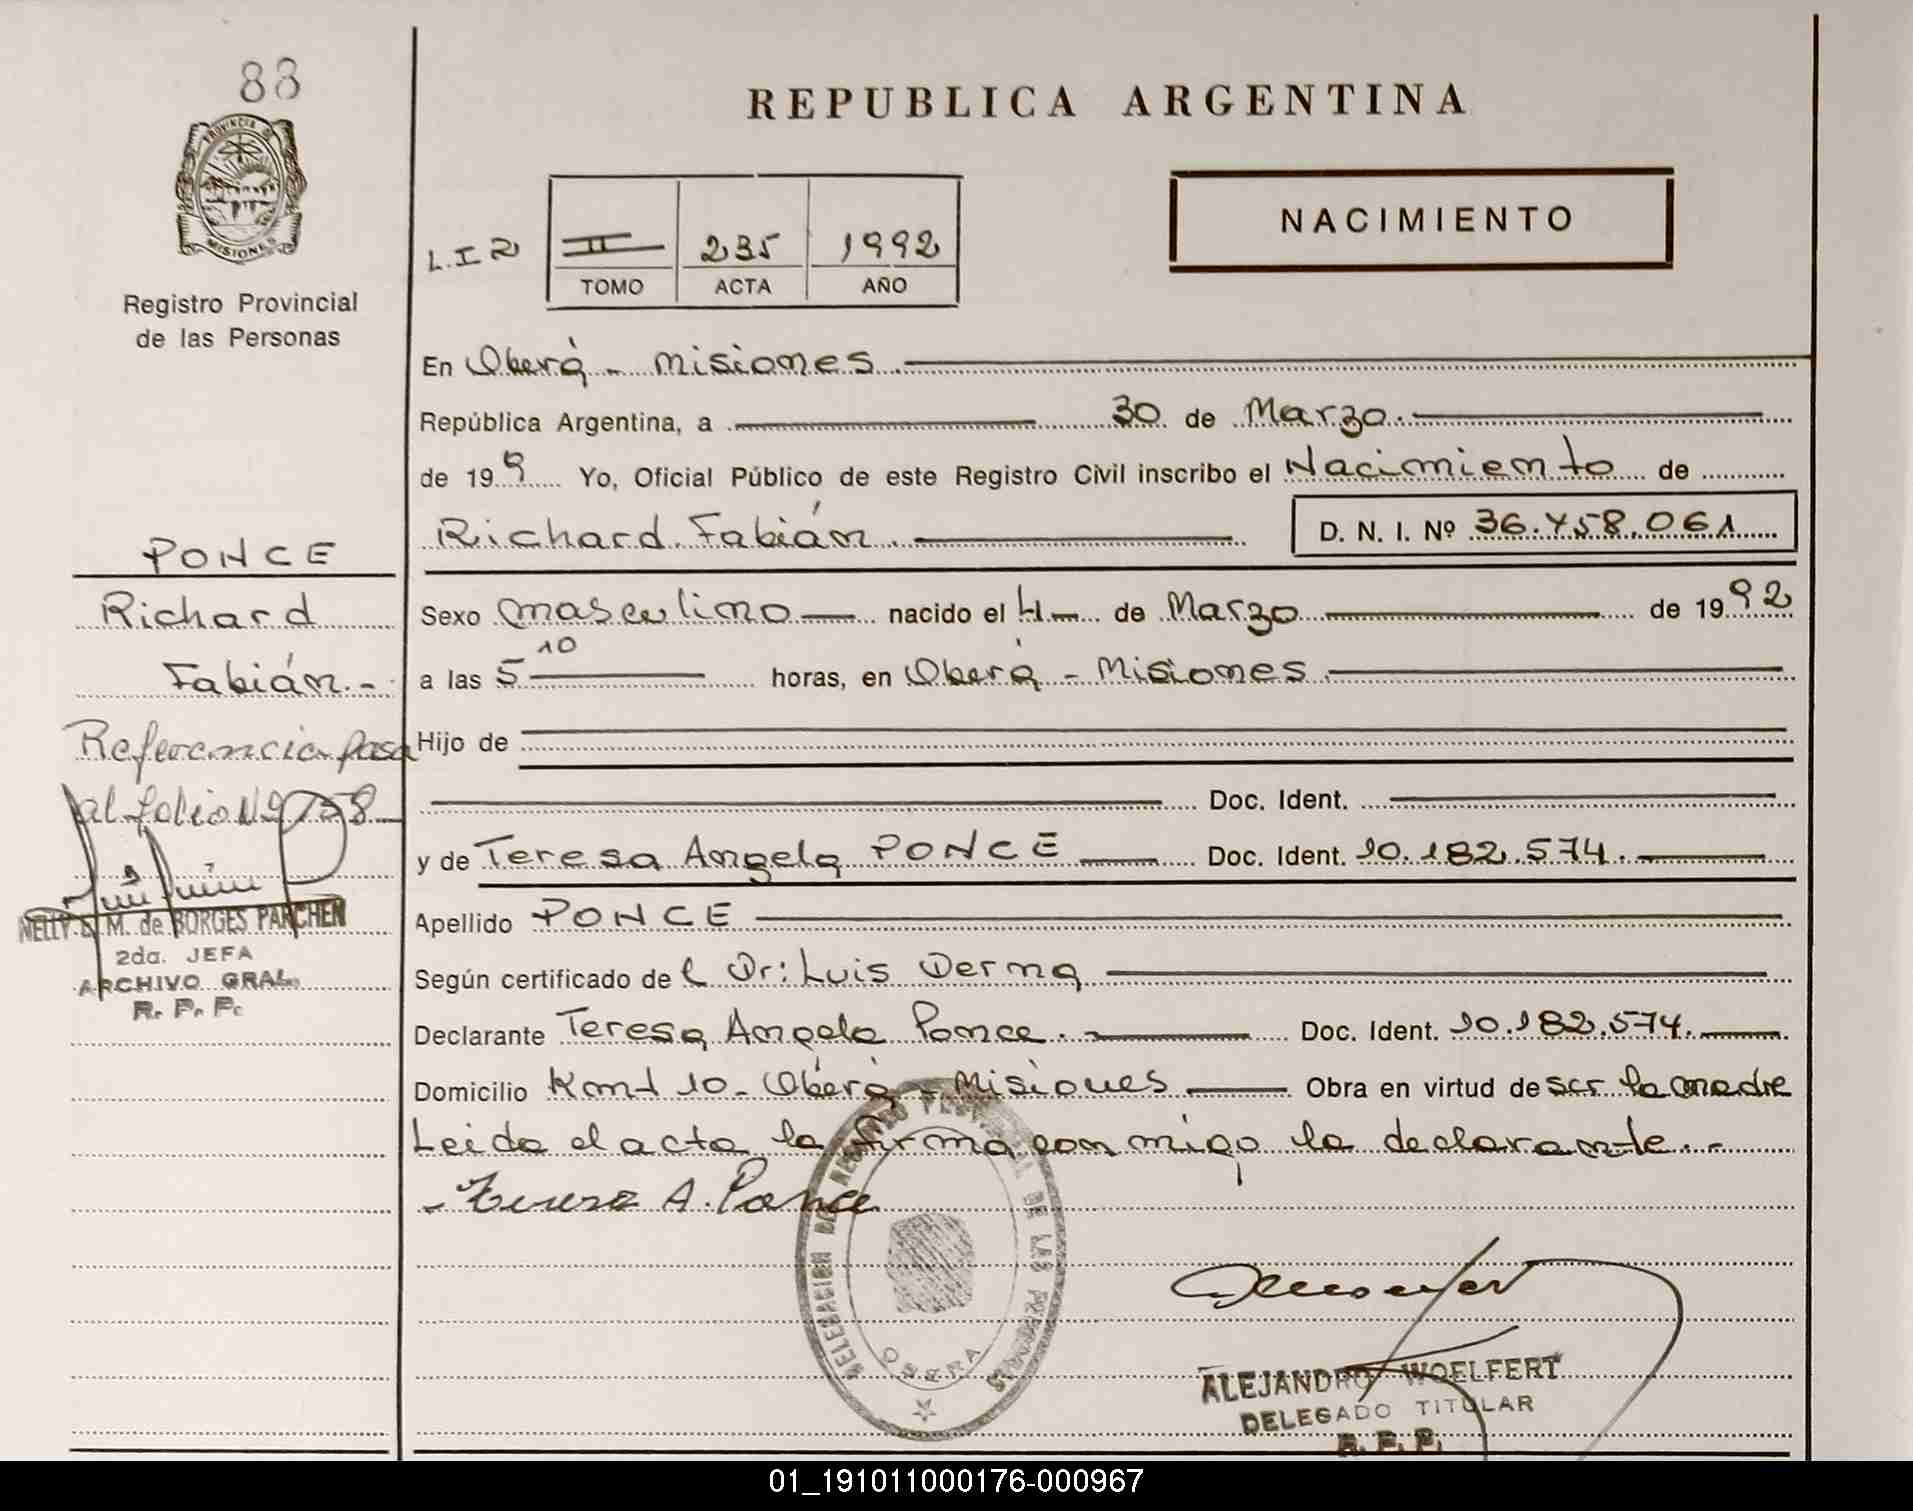 88
PROVINCIA DE
MISIONES
Registro Provincial
de las Personas
REPUBLICA ARGENTINA
NACIMIENTO
L. I R
II 235 1992
TOMO ACTA AÑO
En Oberá - Misiones.
República Argentina, a 30 de Marzo.
de 199 Yo, Oficial Público de este Registro Civil inscribo el Nacimiento de
Richard Fabián. D. N. I. Nº 36.458.061
Sexo masculino nacido el 4 de Marzo de 1992
a las 5 10 horas, en Oberá - Misiones
Hijo de
Doc. Ident.
y de Teresa Angela PONCE Doc. Ident. 10.182.574.
Apellido PONCE
Según certificado de l Dr: Luis Derna
Declarante Teresa Angela Ponce. Doc. Ident. 10.182.574.
Domicilio Kmt 10 - Oberá - Misiones Obra en virtud de ser la madre
Leida el acta la firma conmigo la declarante. -
- Teresa A. Ponce
PONCE
Richard
Fabián. -
Referencia pasa
al folio Nº 158
NELLY E. M. de BORGES PARCHEN
2da. JEFA
ARCHIVO GRAL.
R. P. P.
DELEGACION DEL REGISTRO PROVINCIAL DE LAS PERSONAS
OBERA
ALEJANDRO WOELFERT
DELEGADO TITULAR
R. P. P.
01_191011000176-000967